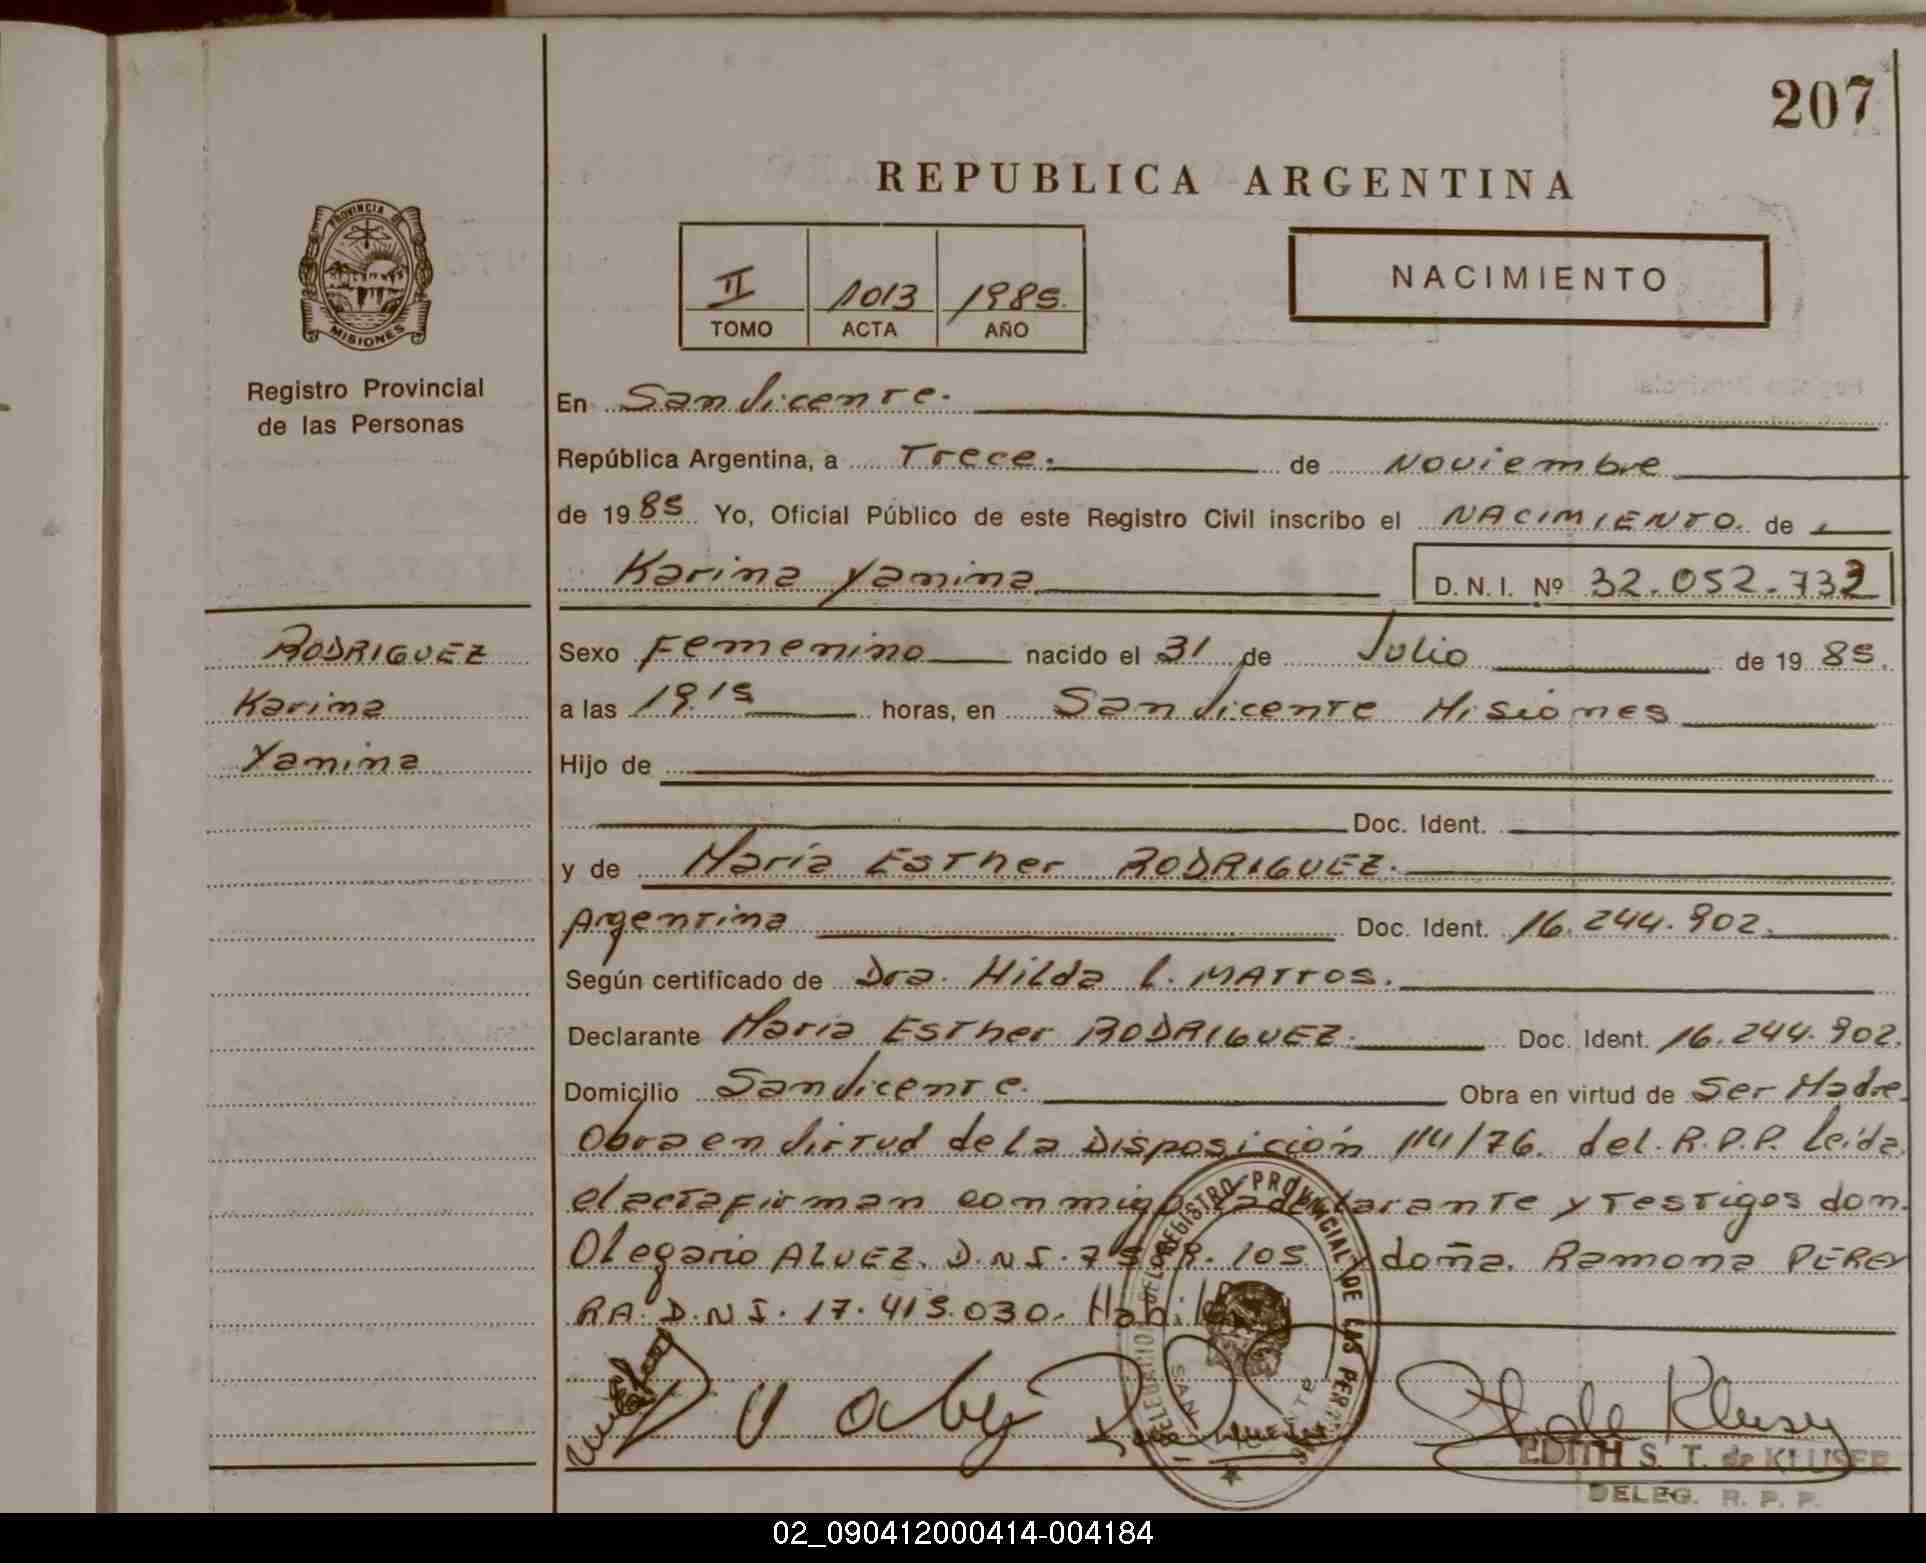 207
REPUBLICA ARGENTINA
PROVINCIA DE
MISIONES
II 1013 1985.
TOMO ACTA AÑO
NACIMIENTO
Registro Provincial
de las Personas
En San Vicente.
República Argentina, a Trece. de Noviembre
de 1985 Yo, Oficial Público de este Registro Civil inscribo el NACIMIENTO. de
Karina Yanina D. N. I. Nº 32.052.732
RODRIGUEZ
Karina
Yanina
Sexo Femenino nacido el 31 de Julio de 1985.
a las 19.15 horas, en San Vicente Misiones
Hijo de
Doc. Ident.
y de María Esther RODRIGUEZ.
Argentina Doc. Ident. 16.244.902.
Según certificado de Dra. Hilda L. MATTOS.
Declarante María Esther RODRIGUEZ. Doc. Ident. 16.244.902.
Domicilio San Vicente. Obra en virtud de Ser Madre.
Obra en Virtud de la Disposición 114/76. del. R.P.P. Leída
el acta firman conmigo la declarante y Testigos don.
Olegario ALVEZ. D.N.I. 105 y doña. Ramona PEREY
RA. D.N.I. 17.415.030. Habiles
DELEGACION DEL REGISTRO PROVINCIAL DE LAS PERSONAS
SAN VICENTE
EDITH S. T. de KLUSER
DELEG. R. P. P.
02_090412000414-004184